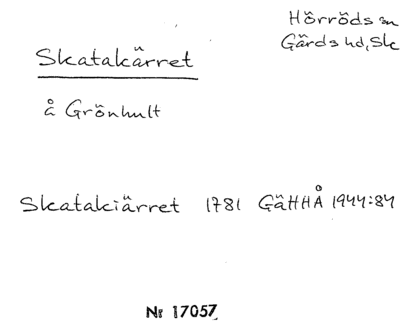 Hörröds sn
Gärds hd, Sk
Skatakärret
å Grönhult
Skatakiärret 1781 GäHHÅ 1944:84
Nr 17057